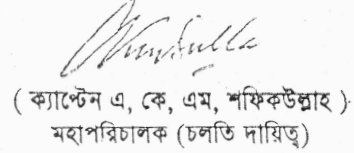 ( ক্যাপ্টেন এ, কে, এম, শফিকউল্লাহ )
মহাপরিচালক (চলতি দায়িত্ব)